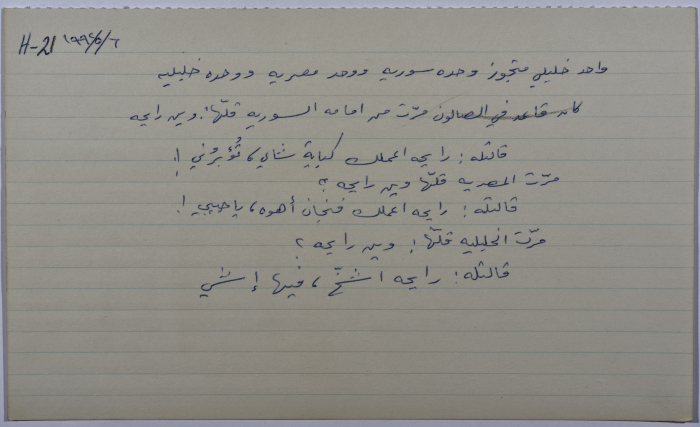 H-21 ١٩٩٤/٥/٦
واحد خليلي متجوز وحده سوريه ووحد مصريه ووحده خليليه
كان قاعد في الصالون مرّت من امامه السوريه قلّها: وين رايحه
قالتله: رايحه اعملك كباية شاي، تُؤبرُوني!
مرّت المصريه قلّها وين رايحه؟
قالتله: رايحه اعملك فنجان أهوه، يا حبيبي!
مرّت الخليليه قلّها: وين رايحه؟
قالتله: رايحه اشخّ، فيها إشي